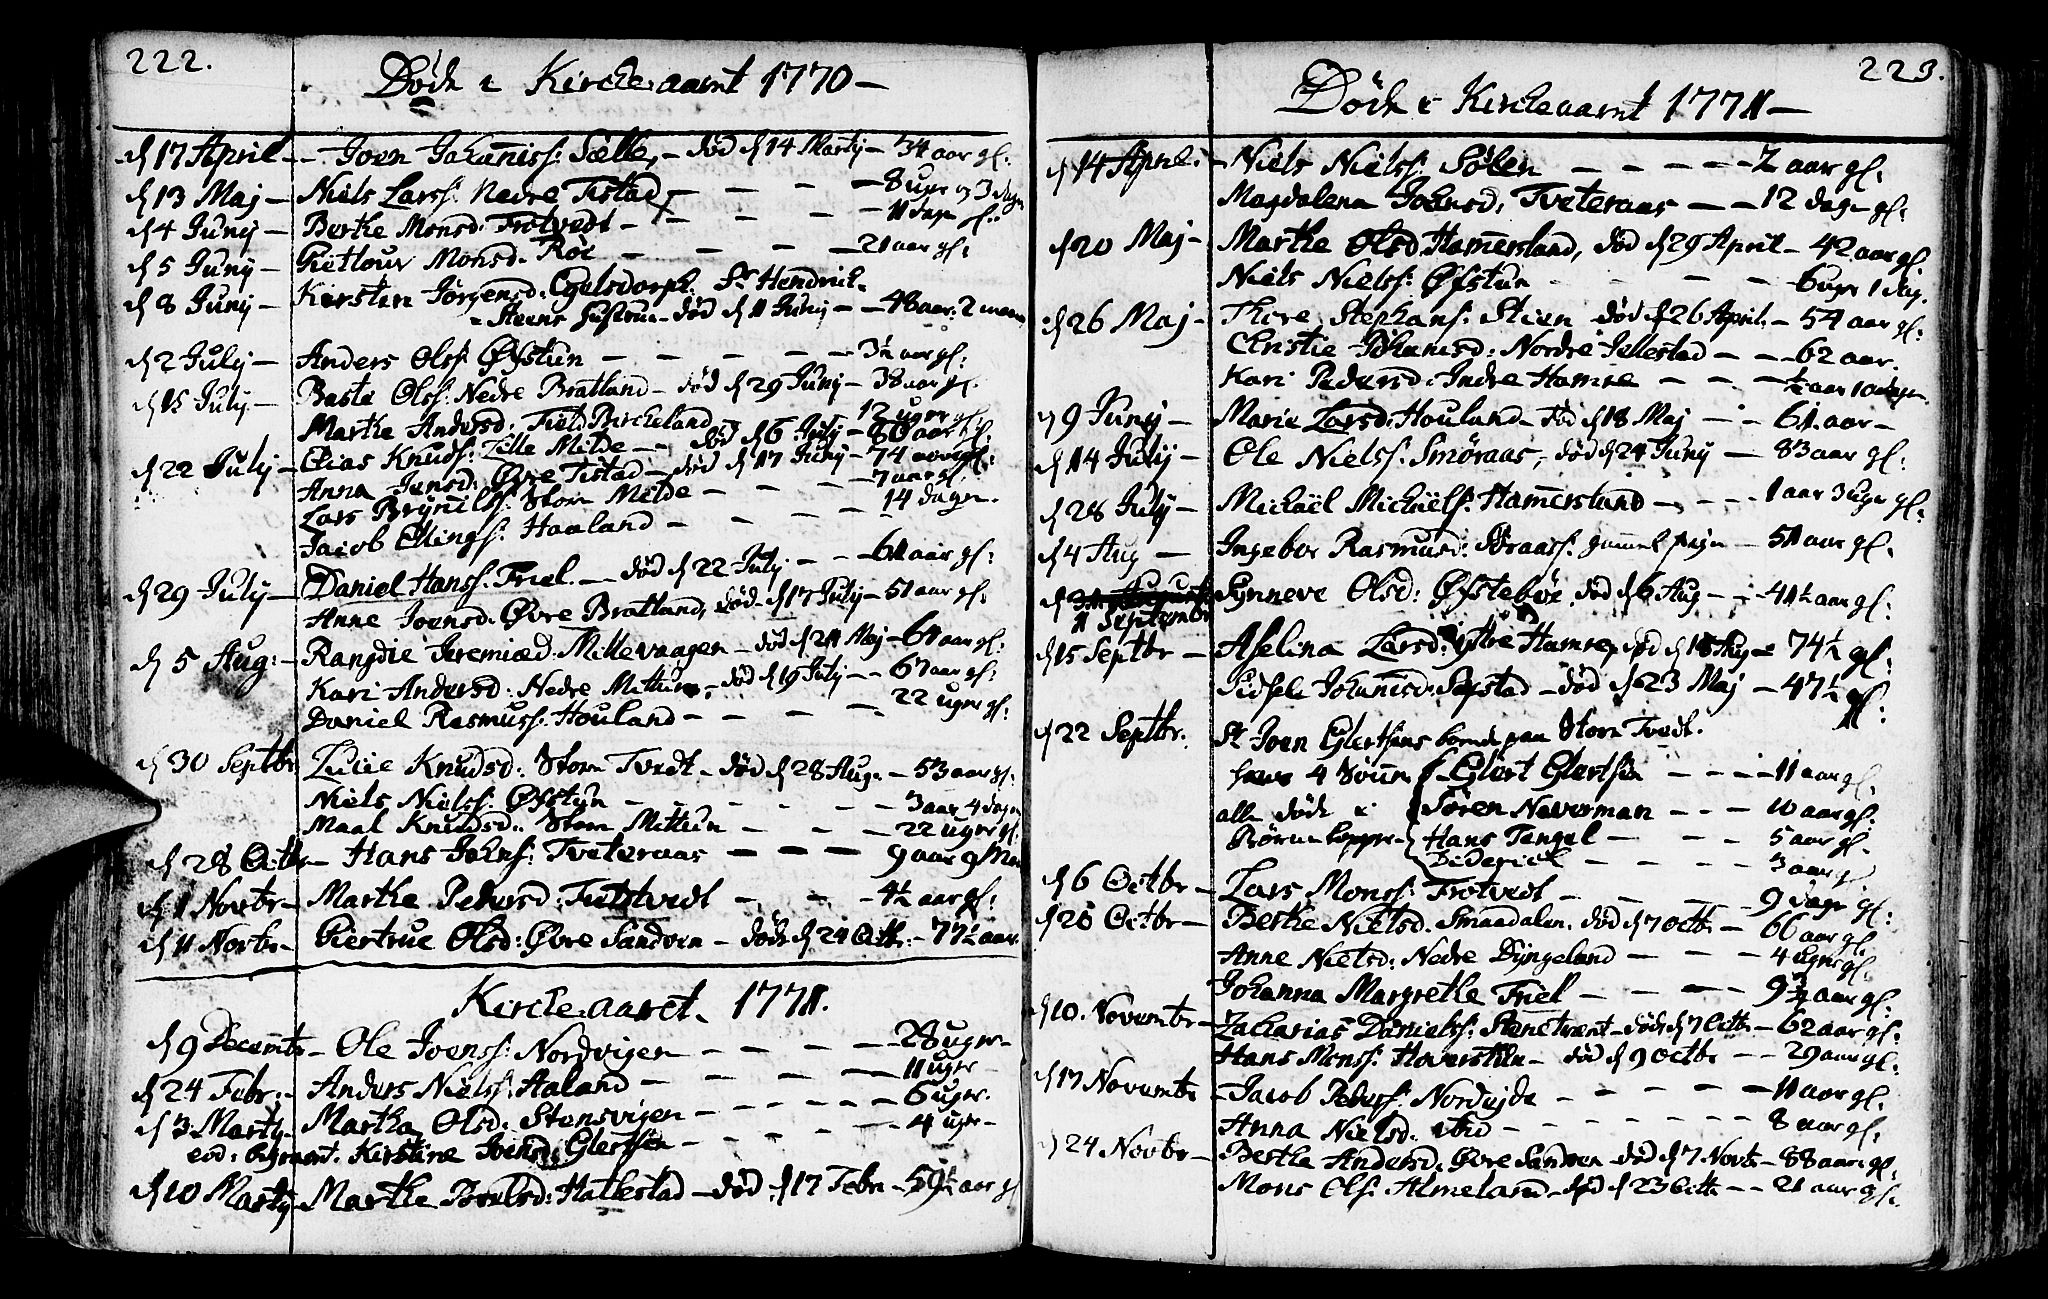 222.
Døde i Kircke aaret 1770 –
d 17 April – Joen Johañiss: Sælle, – død d 14 Marty – 34 aar gl:
d 13 Maj – Niels Larss: Nedre Tistad – – – 8 uger og 3 dage
d 4 Juny – Berthe Monsd: Trotvedt – – – – 11 dage gl:
d 5 Juny – Giertour Monsd: Röe – – – 21 aar gl:
d 8 Juny – Kersten Jörgensd: Egelsdorph. Sr Hendrik
Steens Hustrue – død d 11 Juny – – 48 aar: 2 maan
d 2 July – Anders Olss: Øfstun – – – – – 3½ aar gl:
d 15 July – Baste Olss: Nedre Bratland – død d 29 Juny – 38 aar gl.
Marthe Andersd: Birckeland 12 uger gl:
d 22 July – Elias Knuds: Lille Milde – – død d 6 July – 80 aar gl:
Anna Jensd: Øvre Tistad – – død d 17 Juny – 74 aar gl:
Lars Bryñilss: Store Milde – – – – 7 aar gl:
Jacob Ellings: Haaland – – – – 14 dage.
d 29 July – Daniel Hanss: Friel – – død d 22 July – – 61 aar gl:
Anne Joensd: Øvre Bratland, død d 17 July – 51 aar gl:
d 5 Aug: – Rangdie Jeremiæd: Mittevaagen – død d 21 Maj – 61 aar gl:
Kari Andersd: Nedre Mittun, – død d 19 July – – 67 aar gl:
Daniel Rasmuss: Houland – – – – 22 uger gl:
d 30 Septbr Lucie Knudsd: Store Tvedt – død d 28 Aug – 53 aar gl:
Niels Nielss: Øfstun – – – – – 3 aar 4 dage
Maal Knudsd: Store Mittun – – – 22 uger gl:
d 28 Octbr – Hans Johns: Tveteraas – – – 9 aar 9 Mon
d 1 Novbr – Marthe Pedersd: – – – 4½ aar gl:
d 11 Novbr – Giertrue Olsd: Øvre Sandven – døde d 24 Octbr – 77½ aar.
Kircke aaret 1771.
d 9 Decembr – Ole Joenss: Nordvigen – – – – 28 uger –
d 24 Febr: – Anders Nielss: Aaland – – – – 11 uger –
d 3 Marty – Martha Olsd: Stensvigen – – – – – 6 uger.
eod: begravet. Kirstine Joensd: Glertsen – – – – – 4 uger –
d 10 Marty – Marthe Poulsd: Hatlestad – død d 17 Febr – 59½ aar gl
223.
Døde i Kircke aaret 1771 –
d 14 April – Niels Nielss: Sölen – – – – – 2 aar gl:
Magdalena Johnsd: Tveteraas – – 12 dage gl:
d 20 Maj – Marthe Olsd: Hamersland, død d 29 April – 42 aar gl
Niels Nielss: Øfstun – – – – 6 uger 1 dag.
d 26 Maj – Thore Stephans: Stien død d 26 April – 54 aar gl:
Christie Johanisd: Nordre Jellestad – – – 62 aar.
Kari Pedersd: Indre Hamre – – – ½ aar 10 dage
d 9 Juny – Marie Larsd: Houland – død d 18 Maj – – 61 aar –
d 14 July – Ole Nielss: Smöraas, – død d 24 Juny – 83 aar gl:
d 28 July – Michaël Michaëls: Hamersland – – – – 1 aar 3 uger gl:
d 4 Aug – Ingebor Rasmusd: Söraas: gammel pige – 51 aar gl:
d Synneve Olsd: Øfstebøe, død d 6 Aug – – 41½ aar gl:
11 Septembr
d 15 Septbr – Aselina Larsd: ytre Hamre, død d 18 Aug – 74½ gl:
Sidsele Johanisd: død d 23 Maj – 47½ gl:
d 22 Septbr. Sr Joen Glertsens boende paa Store Tvedt.
4 Sönner Glert Glertsen – – – – 11 aar gl:
alle døde i Sören Neverman – – – 10 aar gl:
Børne kopper Hans Tengel – – – 5 aar gl:
Diderich – – – – 3 aar gl
d 6 Octbr – Lars Monss: Trotvedt – – – – 9 dage gl:
d 20 Octbr – Berthe Nielsd: Smaadalen, død d 7 Octbr – 66 aar gl
Anne Nielsd: Nedre Dyngeland – – – 4 uger gl:
Johanna Margrethe Friel – – – – 9¾ aar gl:
d 10. Novembr – Zacharias Daniels: død d 7 Octbr – 62 aar gl:
Hans Monss: – død d 9 Octbr – – 29 aar gl:
d 17 Novembr – Jacob Pederss: – – – – 11 aar gl:
Anna Nielsd: ibid – – – – – – 8 aar gl:
d 24 Novbr – Berthe Andersd: Øvre Sandven – død d 7 Novbr – 88 aar gl:
Mons Ols: Almeland – død d 23 Octbr – – 21 aar gl: